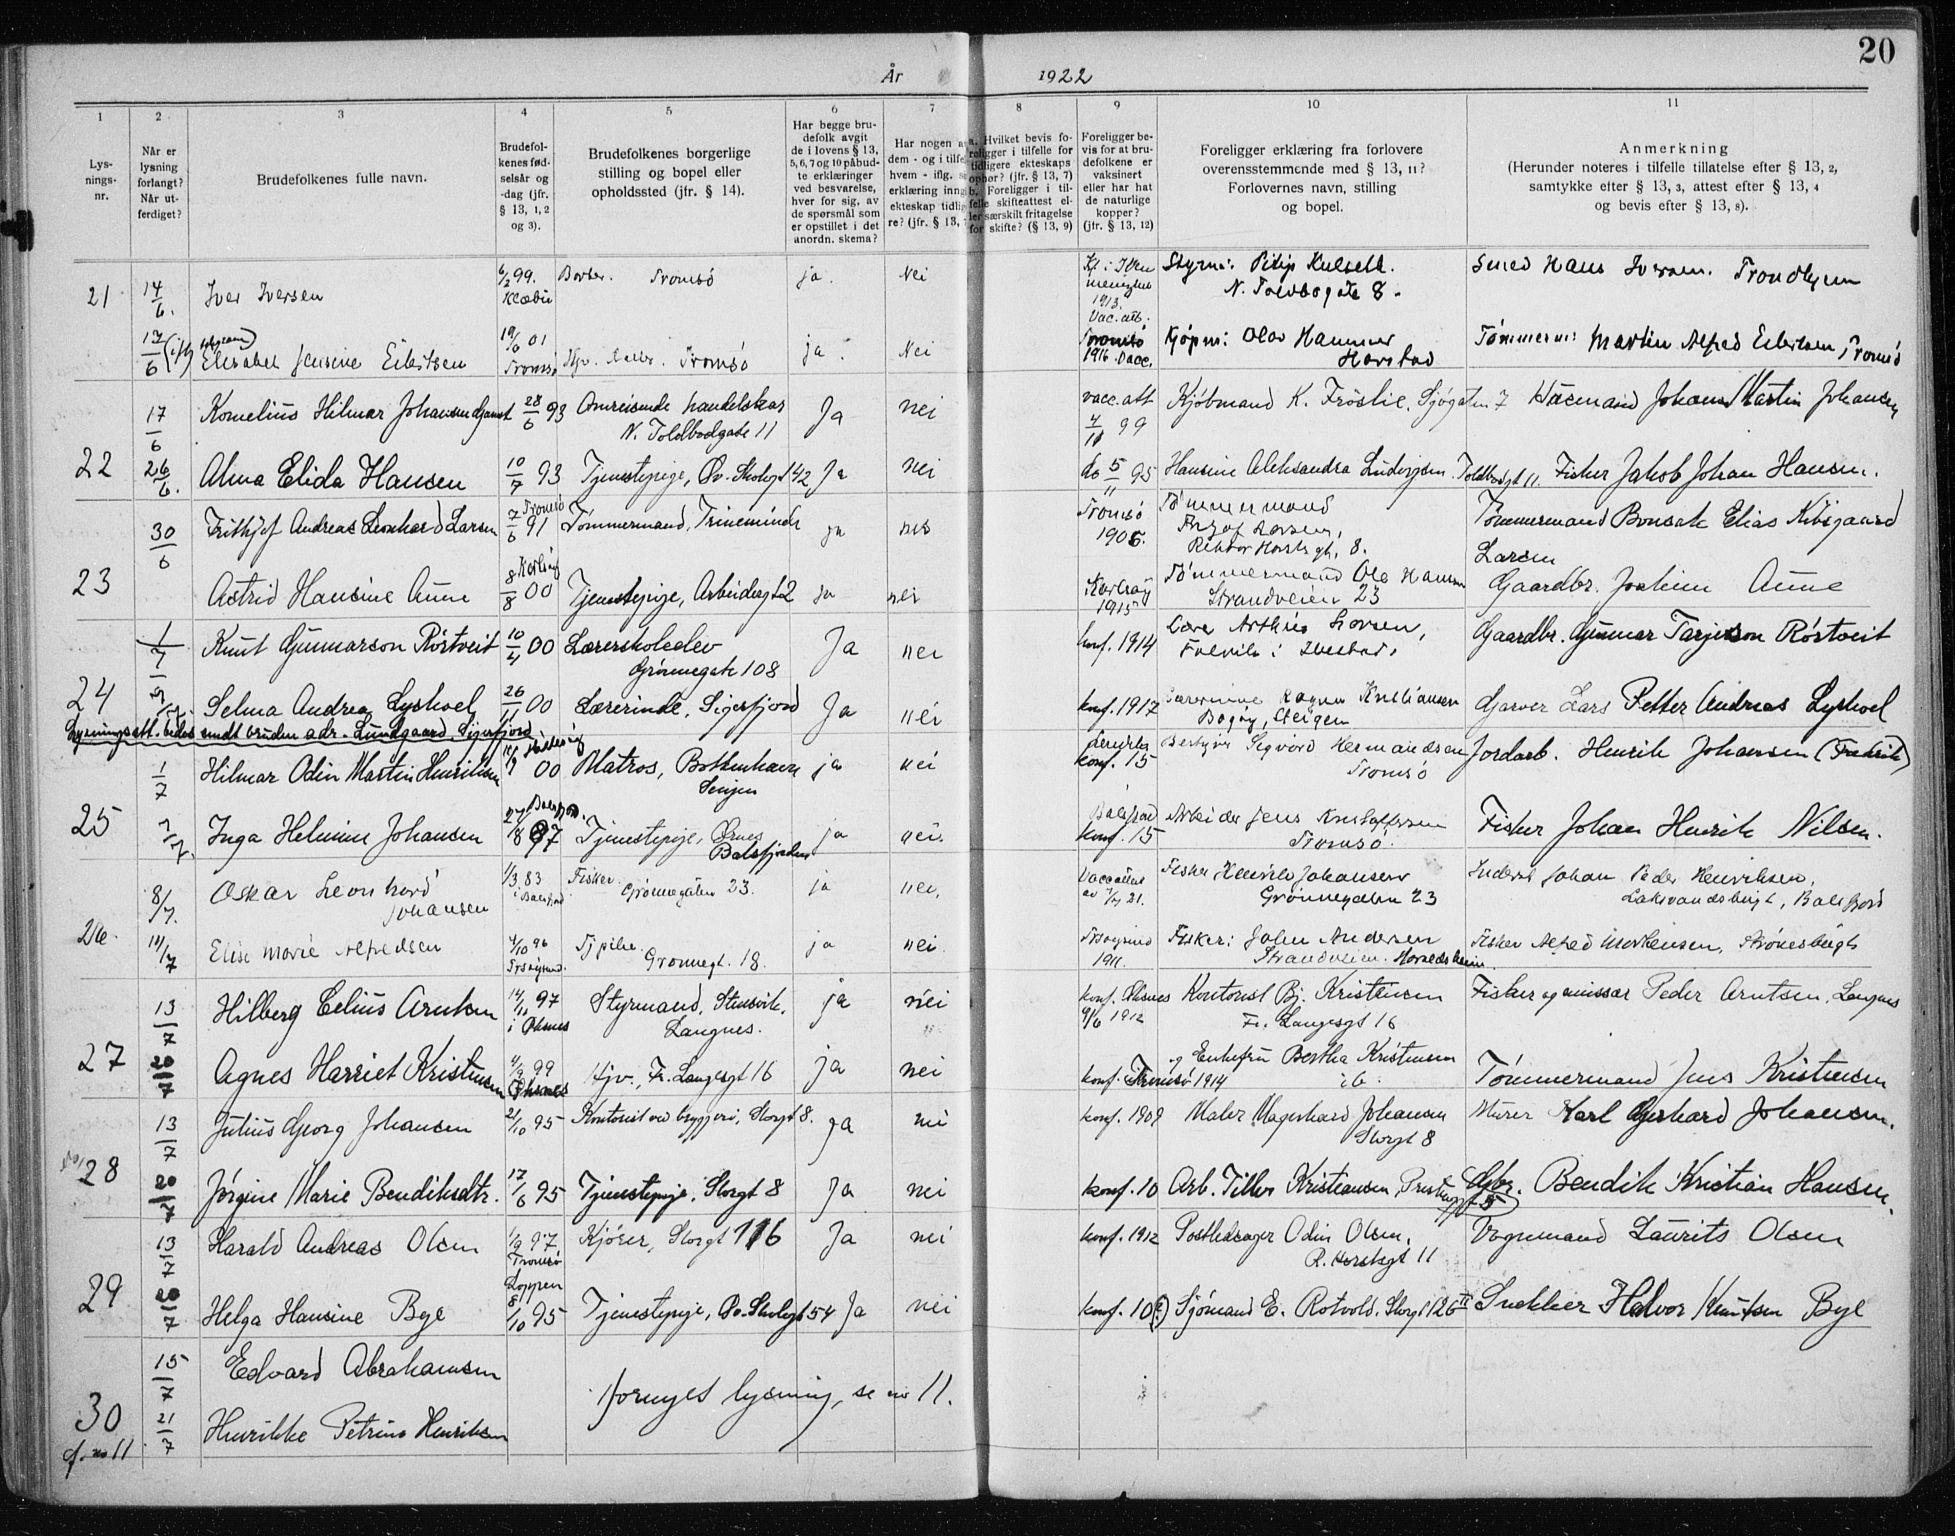 20
År 1922
1 2 3 4 5 6 7 8 9 10 11
Lysningsnr.
Når er lysning forlangt? Når utferdiget?
Brudefolkenes fulle navn.
Brudefolkenes fødselsår og -dag (jfr. § 13, 1, 2 og 3).
Brudefolkenes borgerlige stilling og bopel eller opholdssted (jfr. § 14).
Har begge brudefolk avgit de i lovens § 13, 5, 6, 7 og 10 påbudte erklæringer ved besvarelse, hver for sig, av de spørsmål som er opstillet i det anordn. skema?
Har nogen a dem - og i tilfe hvem - iflg. s erklæring inng ekteskap tidlig re? (jfr. § 13,
a. Hvilket bevis foreligger i tilfelle for tidligere ekteskaps ophør? (§ 13, 7) b. Foreligger i tilfelle skifteattest eller særskilt fritagelse for skifte? (§ 13, 9)
Foreligger bevis for at brudefolkene er vaksinert eller har hat de naturlige kopper? (jfr. § 13, 12)
Foreligger erklæring fra forlovere overensstemmende med § 13, 11? Forlovernes navn, stilling og bopel.
Anmerkning (Herunder noteres i tilfelle tillatelse efter § 13, 2, samtykke efter § 13, 3, attest efter § 13, 4 og bevis efter § 13, 8).
21 14/6. Iver Iversen 6/2 99. Klæbu Tromsö ja. Nei 1913. Vac. att. N. Toldbogate 8. Smed Hans Iversen. Trondhjem
17/6 Elisabet Jensine Eilertsen 19/6 01 Tromsö Tromsö ja. Nei Tromsö 1916 vacc. Kjøpm: Olav Hammer Harstad Tømmerm: Martin Alfred Eilertsen, Tromsö
17/6 Kornelius Hilmar Johansen 28/6 93 Omreisende handelskar N. Toldbodgate 11 Ja nei vacc. att 99 Kjöbmand K. Fröslie, Sjøgaten 7 Johan Martin Johansen
22 26/6. Alma Elida Hansen 10/7 93 Tjenestepige, Öv. Skolegt 42 Ja nei do 5/11 95 Hansine Aleksandra Ludvigsen Toldbodgt 11. Fisker Jakob Johan Hansen.
30/6 Frithjof Andreas Leonhard Larsen 7/6 91 Tromsö Tømmermand, ja nei Tromsö 1906. Tømmermand Larsen, Rektor Horsts gt. 8. Tømmermand Bonsak Elias Larsen
23 Astrid Hansine Aune 8/8 00 Tjenestepige, Arbeidergt 2 ja nei Karlsøy 1915 Tømmermand Ole Hansen Strandveien 23 Gaardbr. Joakim Aune
1/7 Knut Gunnarson Röstveit 10/4 00 Lærerskoleelev Grönnegate 108 Ja nei konf. 1914 Lærer Arthur Larsen, i Ibestad. Gaardbr. Gunnar Tarjeison Röstveit
24 Selma Andrea Lyshoel 26/11 00 Lærerinde, Sigerfjord Ja nei konf. 1917 Lærerinne Ragna Kristiansen Bogøy, Steigen Garver Lars Petter Andreas Lyshoel
Lysningsatt. bedes sendt bruden adr. Lundgaard, Sigerfjord
1/7 Hilmar Odin Martin Henriksen 00 Matros, Botnhavn Senjen ja nei konf. 15 Sigvard Hermandsen Tromsø Jordarb. Henrik Johansen (Fredrik)
25 Inga Helmine Johansen 27/8 97 Tjenestepige, Balsfjorden ja nei. Balsfjord konf. 15 Arbeider Jens Kristoffersen Tromsø. Fisker Johan Henrik Nilsen.
8/7. Oskar Leonhard Johansen 1/3 83 i Balsfjord Fisker. Grønnegaten 23. ja nei. Fisker Henrik Johansen Grønnegaten 23 Inderst Johan Peder Henriksen, Laksvandsbugt, Balsfjord
26. 14/7 Elise Marie Alfredsen 4/10 96 Grønnegt. 18. ja nei. 1911. Fisker: John Andersen Strandveien. Fisker Alfred
13/7 Hilberg Celius Arntsen 14/11 97 i Øksnes Styrmand, Langnes. ja nei konf. Øksnes 9/6 1912 Kontorist Bj. Kristensen Fr. Langesgt 16 Fisker og Peder Arntsen, Langnes
27 20/7 Agnes Harriet Kristensen 4/9 99 Hjv., Fr. Langesgt 16 ja nei konf. Tromsø 1914 og Enkefru Bertha Kristensen ib. Tömmermand Jens Kristensen
13/7 Julius Georg Johansen 21/10 95 Kontorist ved bryggeri, Storgt 8. ja nei konf. 1909 Maler Magerhard Johansen Storgt 8 Murer Karl Gerhard Johansen.
28 20/7 Jörgine Marie Bendiksdtr. 17/6 95 Tjenestepige, Storgt 8 Ja nei konf. 10 Arb. Kristiansen, 5 Gbr. Bendik Kristian Hansen.
13/7 Harald Andreas Olsen 1/9 97 Tromsø Kjörer, Storgt 116 Ja nei konf. 1912 Odin Olsen. R. Horstsgt 11 Vognmand Laurits Olsen
29 20/7 Helga Hansine Bye Loppen 8/10 95 Tjenestepige, Öv. Skolegt 54 Ja nei konf. 10 (?) Sjömand E. Rotvold. Storgt 126 II Snekker Halvor Knutsen Bye
15/7 Edvard Abrahamsen
30 21/7 Henrikke Petrine Henriksen fornyet lysning, se no 11.
cf. no 11